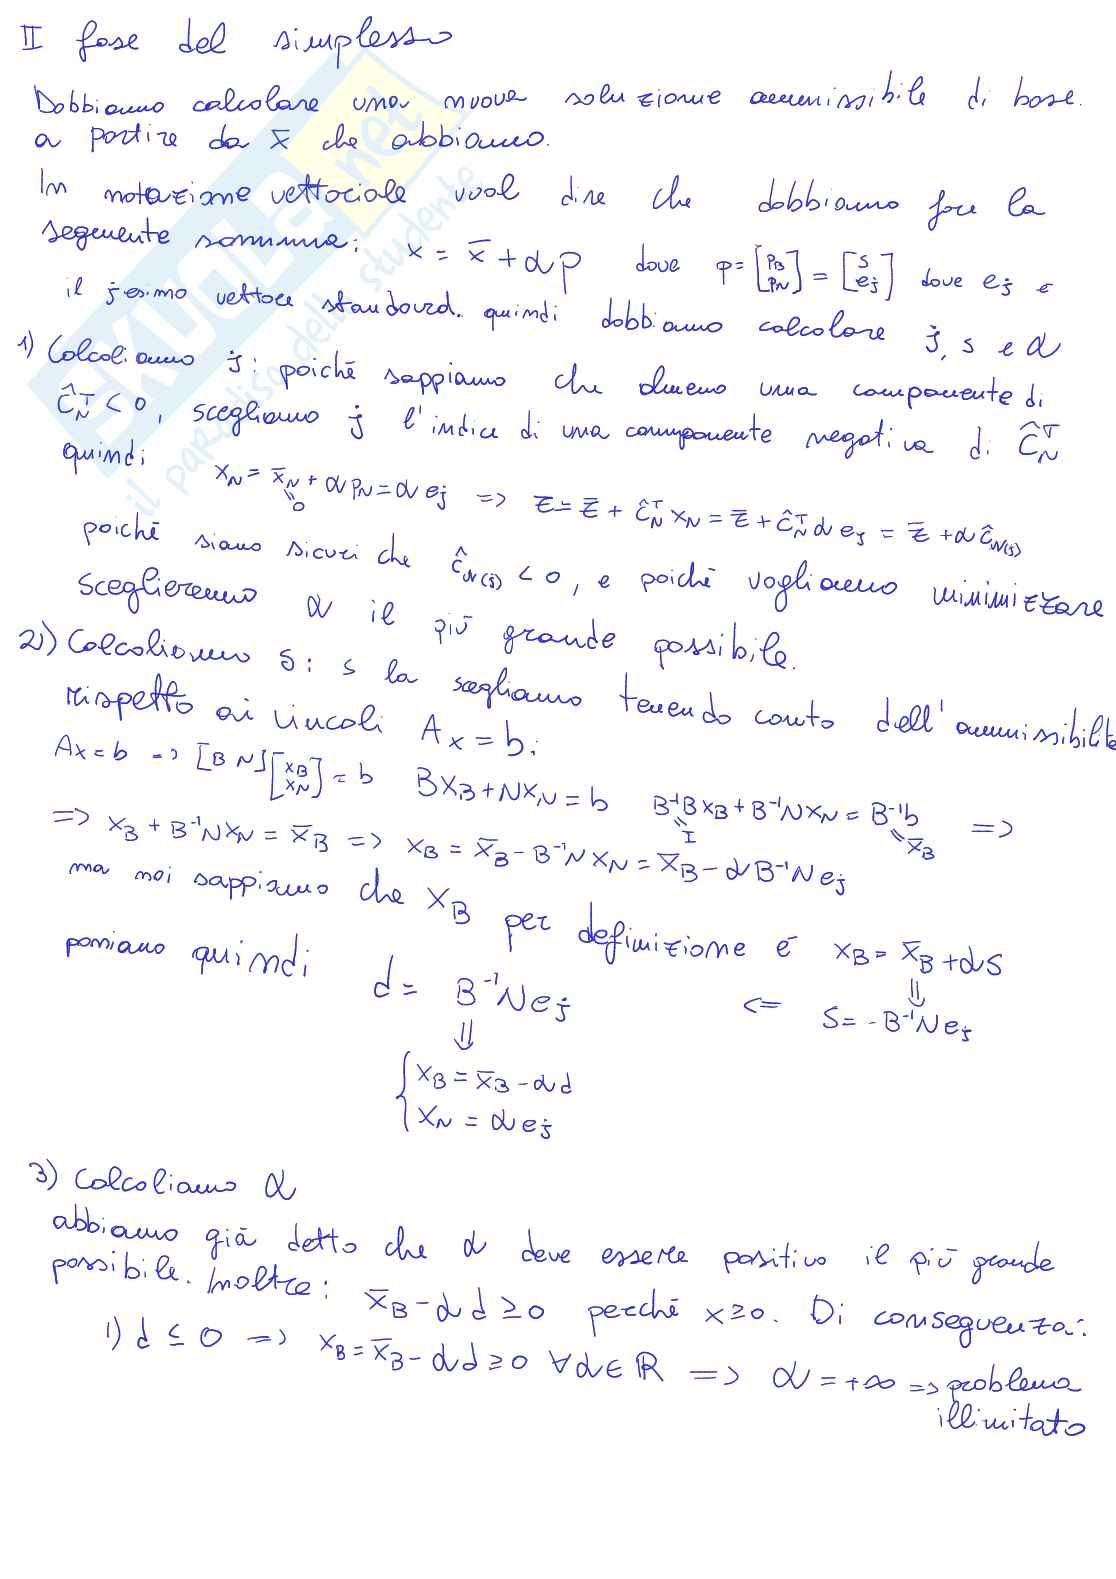 II fase del simplesso
Dobbiamo calcolare una nuova soluzione ammissibile di base
a partire da x̄ che abbiamo.
In notazione vettociale vuol dire che dobbiamo fare la
seguente somma: x = x̄ + αp dove p = [p_B p_N] = [s e_j] dove e_j e
il jesimo vettore standard. quindi dobbiamo calcolare j, s e α
1) Calcoliamo j: poiché sappiamo che almeno una componente di
ĉ_N^T < 0, scegliamo j l'indice di una componente negativa di ĉ_N^T
quindi
x_N = x̄_N + αp_N = αe_j => z = z̄ + ĉ_N^T x_N = z̄ + ĉ_N^T αe_j = z̄ + αĉ_N(j)
= 0
poiché siamo sicuri che ĉ_N(j) < 0, e poiché vogliamo minimizzare
sceglieremo α il più grande possibile.
2) Calcoliamo s: s la scegliamo tenendo conto dell'ammissibilità
rispetto ai vincoli Ax = b:
Ax = b => [B N][x_B x_N] = b Bx_B + Nx_N = b B⁻¹Bx_B + B⁻¹Nx_N = B⁻¹b =>
I x̄_B
=> x_B + B⁻¹Nx_N = x̄_B => x_B = x̄_B - B⁻¹Nx_N = x̄_B - αB⁻¹Ne_j
ma noi sappiamo che x_B per definizione é x_B = x̄_B + αs
poniamo quindi d = B⁻¹Ne_j <= s = -B⁻¹Ne_j
⇓
{ x_B = x̄_B - αd
x_N = αe_j
3) Calcoliamo α
abbiamo già detto che α deve essere positivo il più grande
possibile. Inoltre: x̄_B - αd ≥ 0 perché x ≥ 0. Di conseguenza:
1) d ≤ 0 => x_B = x̄_B - αd ≥ 0 ∀α∈ℝ => α = +∞ => problema
illimitato
SKUOLA.net
il paradiso dello studente